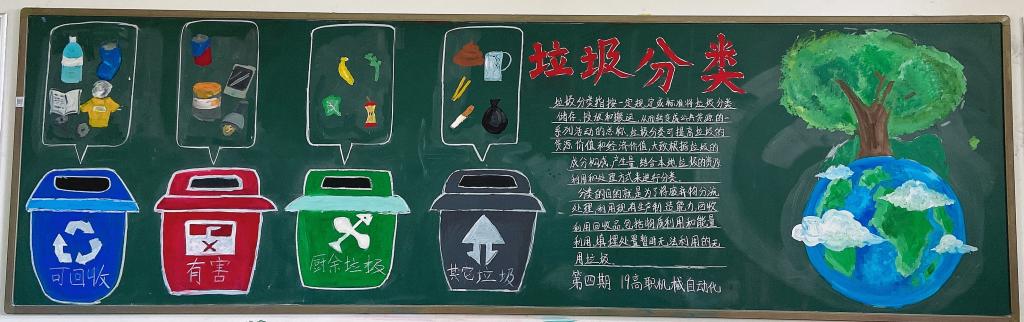 可回收
有害
厨余垃圾
其它垃圾
垃圾分类
垃圾分类指按一定规定或标准将垃圾分类
储存、投放和搬运，从而转变成公共资源的一
系列活动的总称，垃圾分类可提高垃圾的
资源价值和经济价值，大致根据垃圾的
成分构成、产生量，结合本地垃圾的资源
利用和处理方式来进行分类。
分类的目的就是为了将废弃物分流
处理，利用现有生产制造能力，回收
利用回收品，包括物质利用和能量
利用，填埋处置暂时无法利用的无
用垃圾
第四期 19高职机械自动化